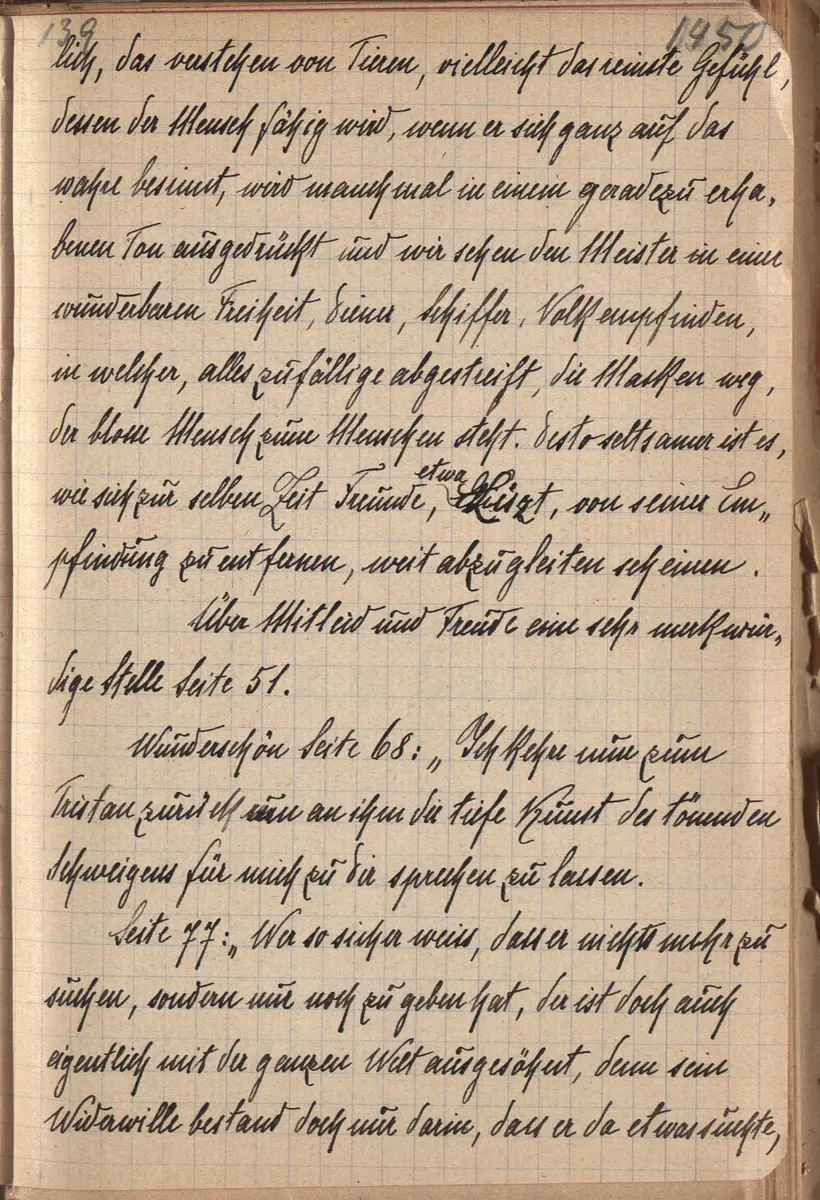 139 1450
lich, das verstehen von Tieren, vielleicht das reinste Gefühl,
dessen der Mensch fähig wird, wenn er sich ganz auf das
wahre besinnt, wird manchmal in einem geradezu erha-
benen Ton ausgedrückt und wir sehen den Meister in einer
wunderbaren Freiheit, Diener, Schiffer, Volk empfinden,
in welcher, alles zufällige abgestreift, die Masken weg,
der blosse Mensch zum Menschen steht. Desto seltsamer ist es,
wie sich zur selben Zeit Freunde, etwa Liszt, von seiner Em„
pfindung zu entfernen, weit abzugleiten scheinen.
Über Mitleid und Freude eine sehr merkwür„
dige Stelle Seite 51.
Wunderschön Seite 68: „Ich kehre nun zum
Tristan zurück um an ihm die tiefe Kunst des tönenden
Schweigens für mich zu dir sprechen zu lassen.
Seite 77: „Wer so sicher weiss, dass er nichts mehr zu
suchen, sondern nur noch zu geben hat, der ist doch auch
eigentlich mit der ganzen Welt ausgesöhnt, denn sein
Widerwille bestand doch nur darin, dass er da etwas suchte,